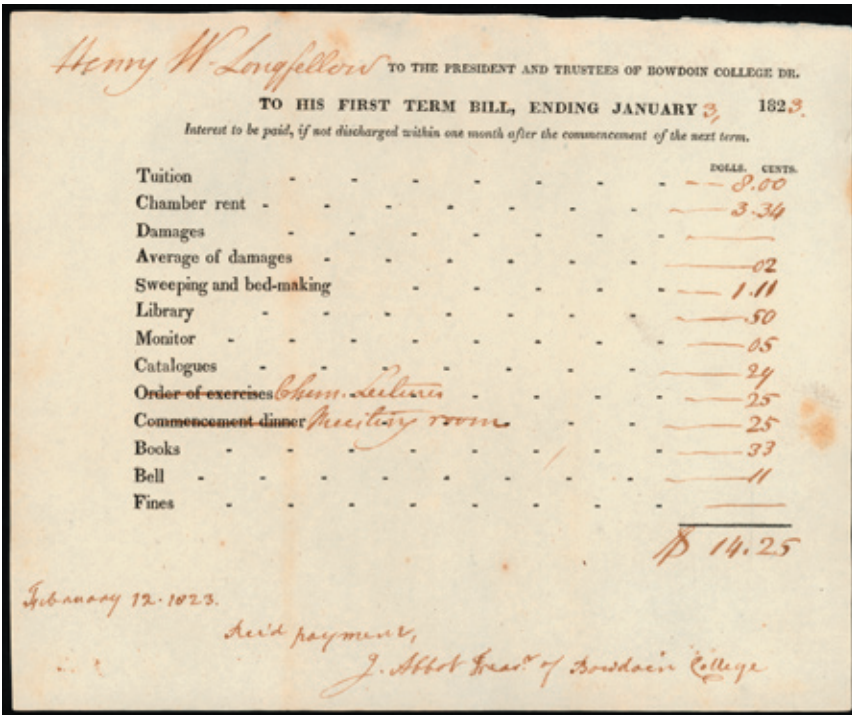 Henry W. Longfellow TO THE PRESIDENT AND TRUSTEES OF BOWDOIN COLLEGE DR.
TO HIS FIRST TERM BILL, ENDING JANUARY 3, 1823.
Interest to be paid, if not discharged within one month after the commencement of the next term.
DOLLS. CENTS.
Tuition - - - - - - - 8.00
Chamber rent - - - - - - - - 3.34
Damages - - - - - - -
Average of damages - - - - - - .02
Sweeping and bed-making - - - - - 1.11
Library - - - - - - - .50
Monitor - - - - - - - - .05
Catalogues - - - - - - - .29
Order of exercises Chem. Lectures - - - - .25
Commencement dinner Reciting room - - - .25
Books - - - - - - - - .33
Bell - - - - - - - - - .11
Fines - - - - - - - -
$ 14.25
February 12. 1823.
Rec'd payment,
J. Abbot Treasr of Bowdoin College